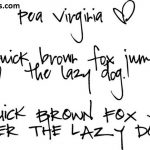 s.com
pea virginia ♡
uick brown fox jum
the lazy dog!
UICK BROWN FOX
ER THE LAZY DO